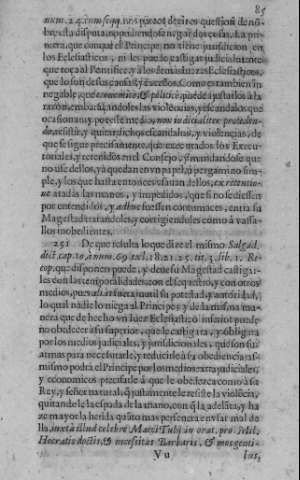 85
num. 24. cum seqq.
nera, que aunque el Principe no tiene jurisdicion en
los Eclesiasticos, ni les puede castigar judicialmente
que toca al Pontifice, y a los demás Iuezes Eclesiasticos,
que lo son de sus causas, y excessos. Como es tambien in-
negable, que economicè, & politicè, puede ajustarlos à la
razon, embarazandoles las violencias, y escandalos que
ocasionan, y por este medio, non iudicialiter proceden-
do, resistir, y quitar dichos escandalos, y violencias, de
que se sigue precisamente, que executados los Execu-
toriales, y retenidos en el Consejo, y mandandose que
no use dellos, ya quedan en vn papel, ò pergamino sim-
ple, y los que hasta entonces vsavan dellos, ex retentio-
ne atadas las manos, y impedidos, que si no se desisten
por entendidos, y adhuc fuessen contumaces, entra su
Magestad tratandoles, y corrigiendoles como à vassa-
llos inobedientes.
251 De que resulta lo que dize el mismo Salgad.
dict. cap. 10. à num. 69. ex l. 18. 21. 25. tit. 3. lib. 1. Re-
cop. que disponen puede, y deve su Magestad castigar-
les con las temporalidades, con el sequestro, y con otros
medios, pues alias fuera inutil su potestad, y autoridad,
lo qual nadie lo niega al Principe: y de la misma ma-
nera que de hecho vn Iuez Eclesiastico inferior puede
no obedecer à su superior, que le castigara, y obligara
por los medios judiciales, y jurisdicionales, que son sus
armas para necessitarle, y reducirle à su obediencia; assi-
mismo podrà el Principe por los medios extrajudiciales,
y economicos precisarle à que le obedezca como à sa
Rey, y señor natural, q justamente le resiste la violencia,
quitandole la espada de la mano, con que la adelãta, y ha-
ze mayor la herida
la, iuxta illud celebre Marci Tulij in orat. pro. Mil.
Hoc ratio doctis, & necessitas Barbaris, & mos genti-
Vu
bus,